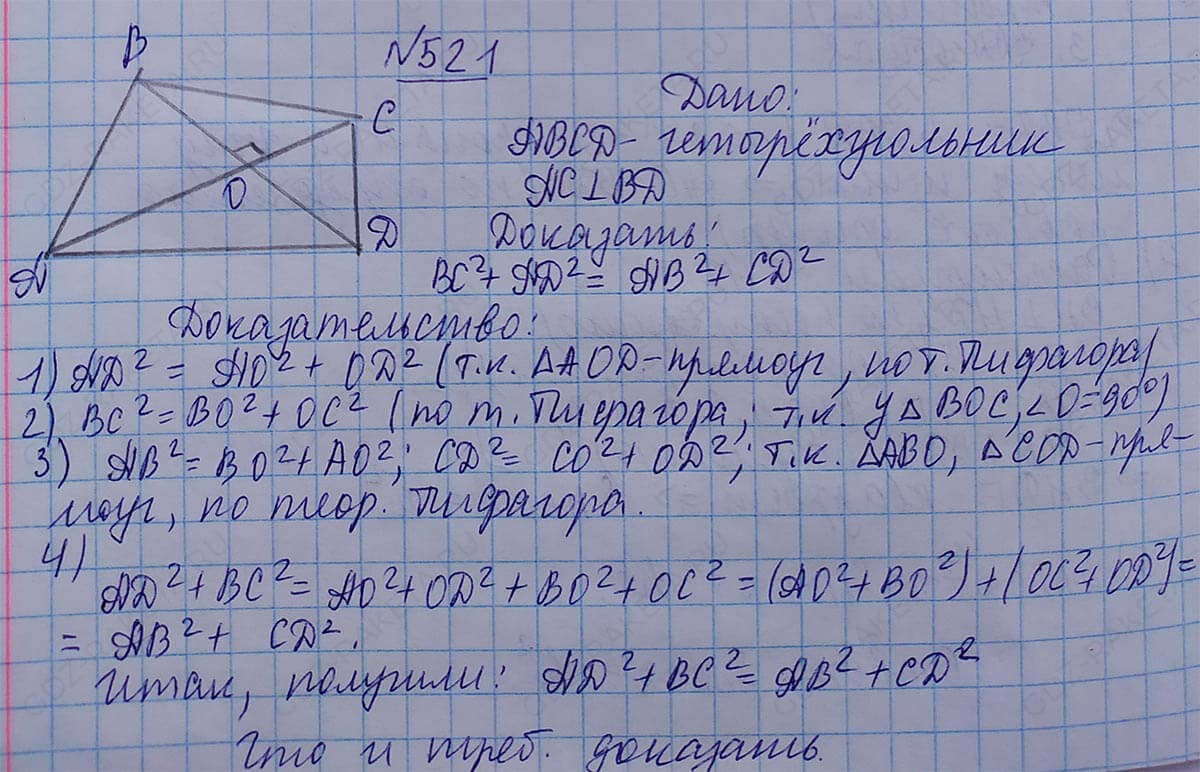 №521
B
C
O
A
D
Дано:
ABCD - четырёхугольник
AC⊥BD
Доказать:
BC²+AD²=AB²+CD²
Доказательство:
1) AD² = AO²+OD² (т.к. △AOD-прямоуг, по т. Пифагора)
2) BC²=BO²+OC² (по т. Пифагора; т.к. у △BOC, ∠O=90°)
3) AB²=BO²+AO²; CD²=CO²+OD²; т.к. △ABO, △COD-пря-
моуг, по теор. Пифагора.
4)
AD²+BC²=AO²+OD²+BO²+OC²=(AO²+BO²)+(OC²+OD²)=
= AB²+ CD².
Итак, получили: AD²+BC²=AB²+CD²
Что и треб. доказать.